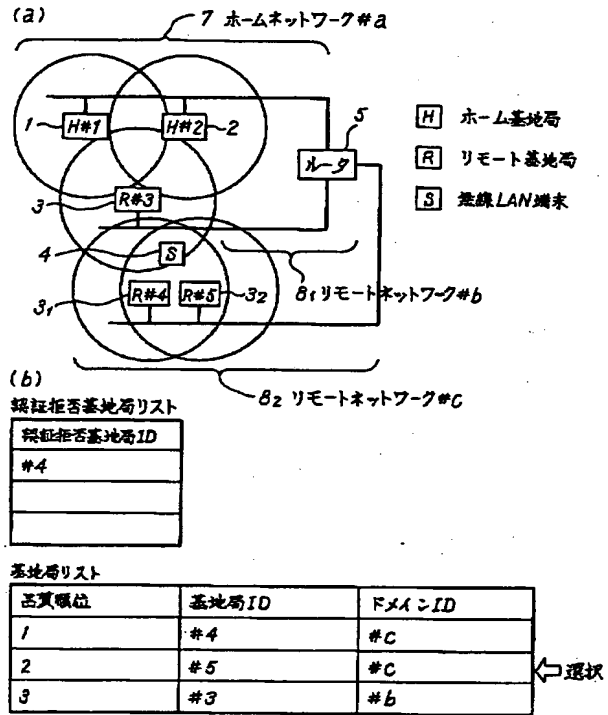 (a)
7 ホームネットワーク#a
1 H#1 H#2 2
5
ルータ
H ホーム基地局
R リモート基地局
S 無線LAN端末
3 R#3
4 S
8₁リモートネットワーク#b
3₁ R#4 R#5 3₂
8₂ リモートネットワーク#c
(b)
認証拒否基地局リスト
認証拒否基地局ID
#4
基地局リスト
品質順位 基地局ID ドメインID
1 #4 #c
2 #5 #c 選択
3 #3 #b